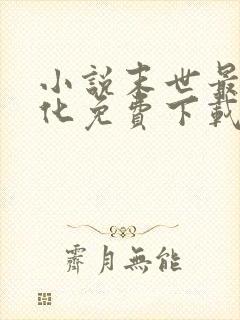 小說末世最
化免費下載
霽月無能